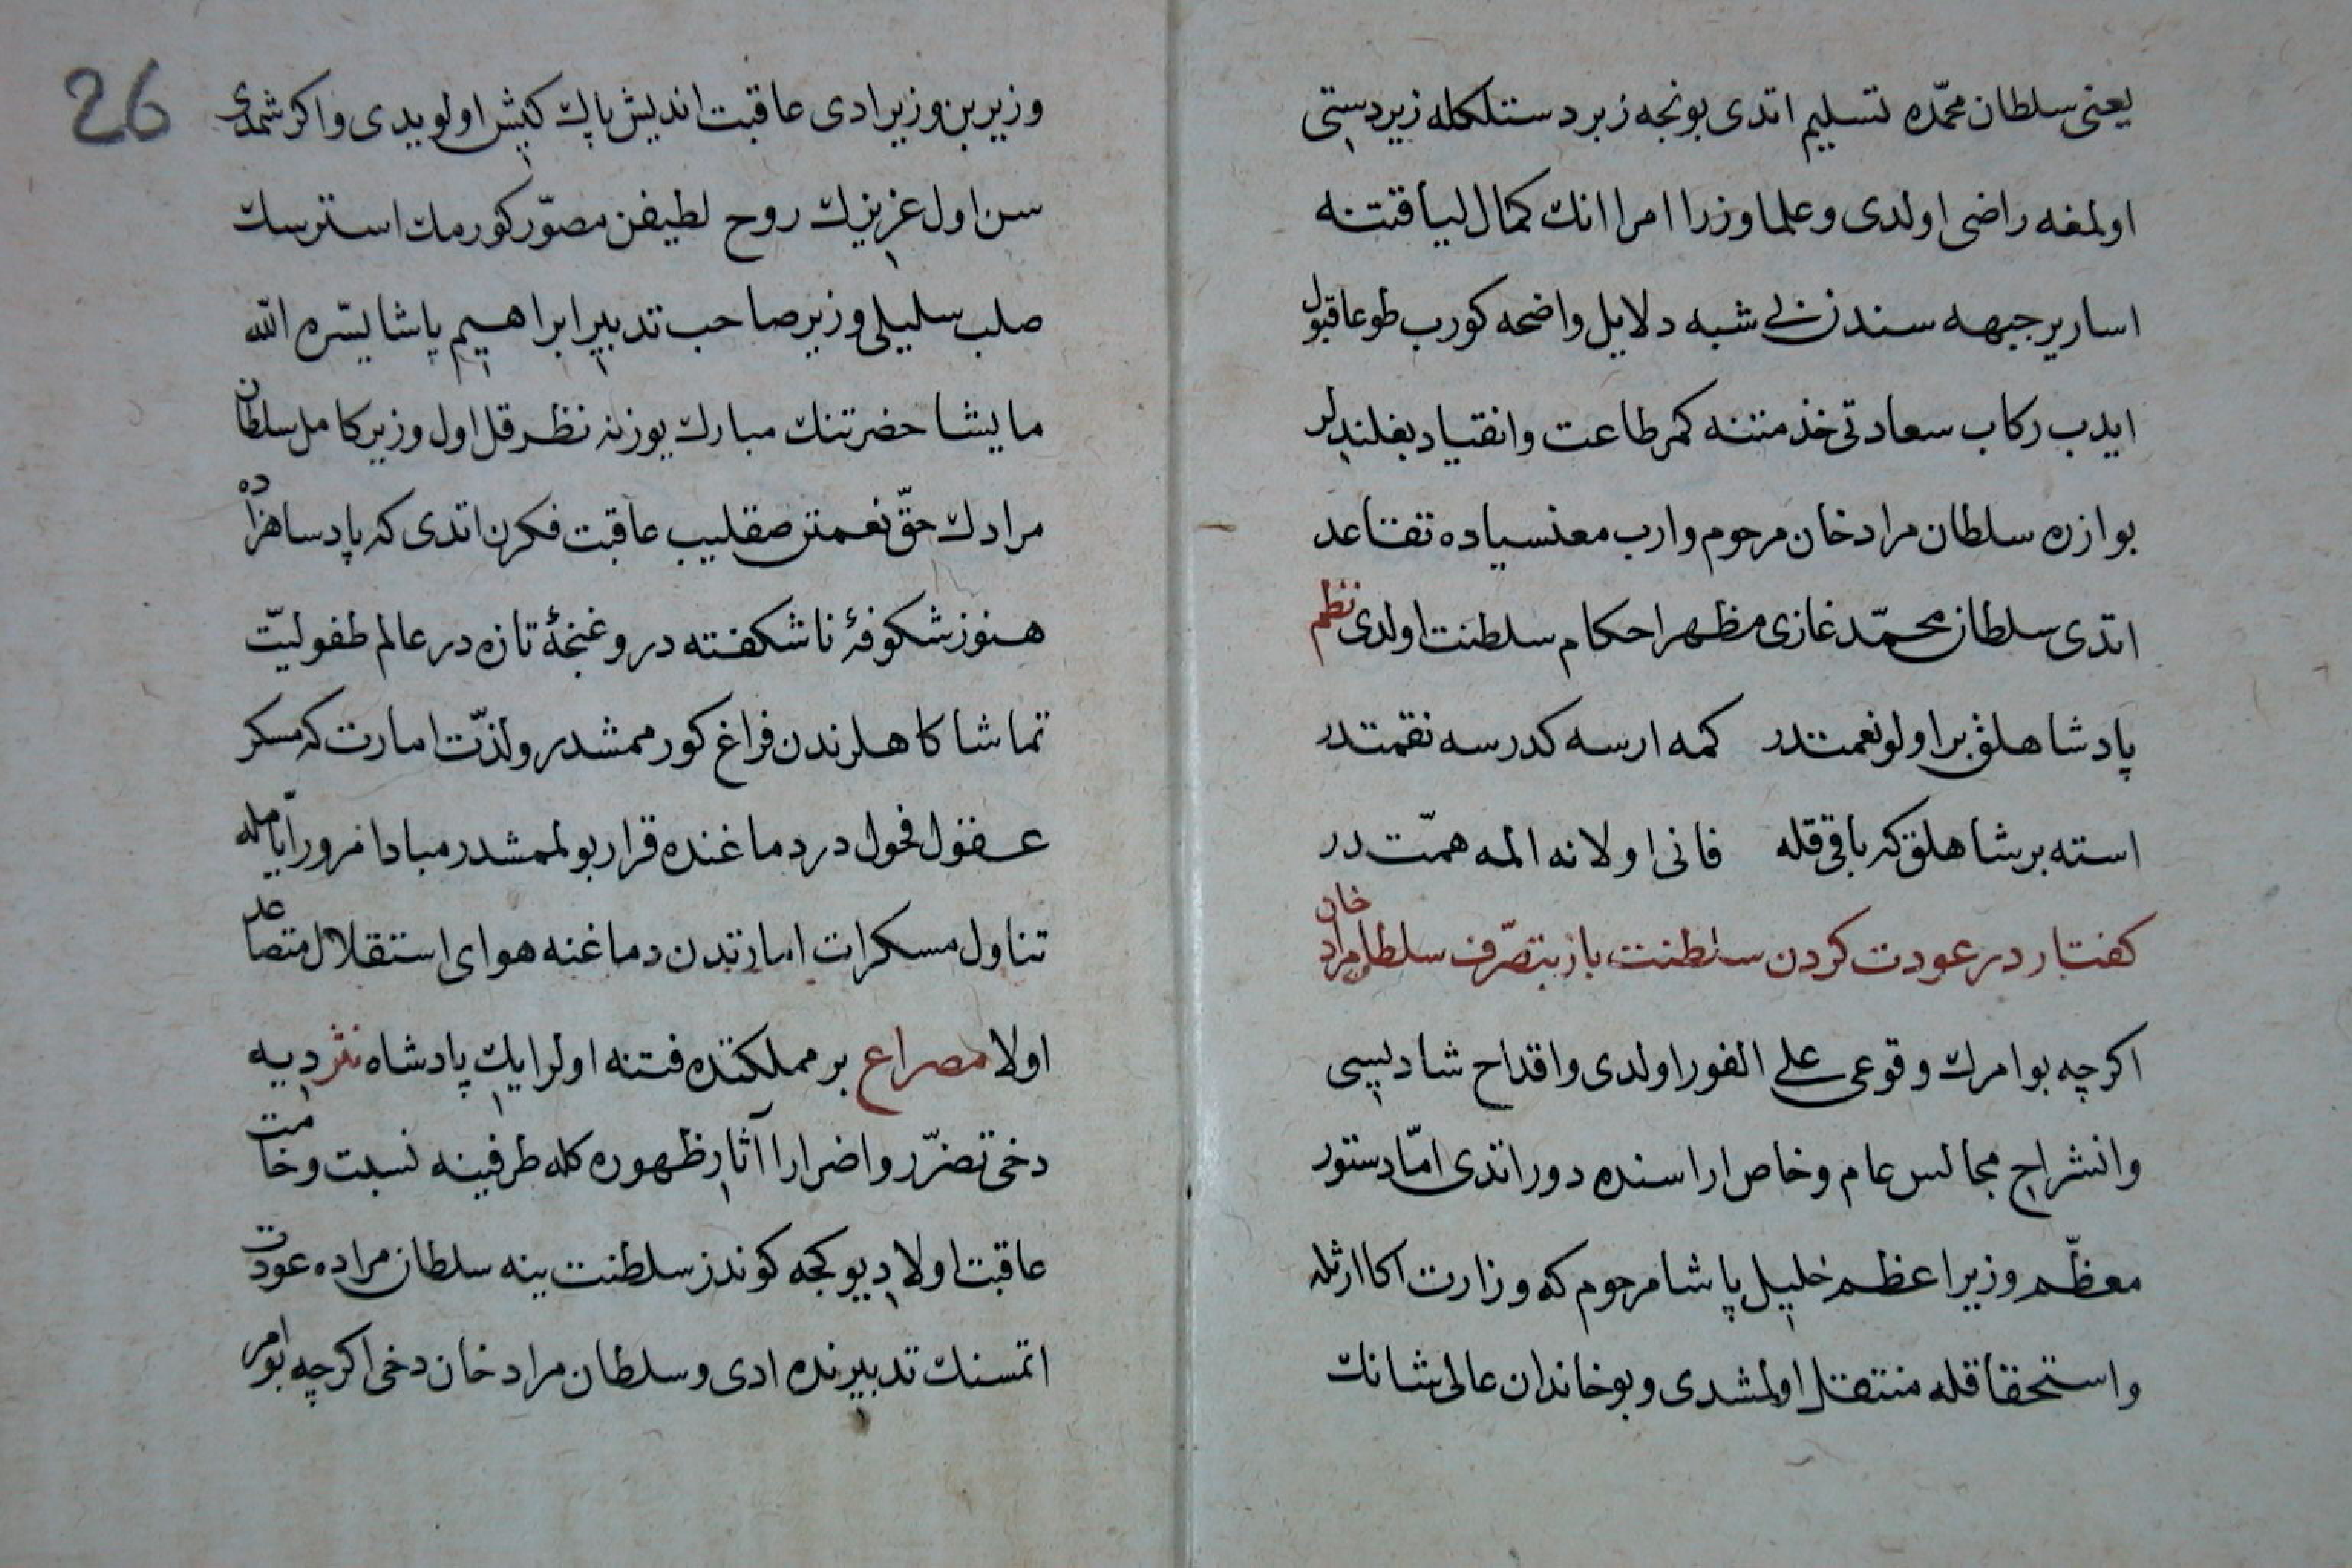 يعنی سلطان محمّده تسليم اتدی بونجه زبردستلكله زيردستی
اولمغه راضی اولدی و علما وزرا امرا انك كمال لياقتنه
اسارير جبهه سندن بی شبه دلايل واضحه كورب طوعا قبول
ايدب ركاب سعادتی خذمتنه كمر طاعت وانقياد بغلنديلر
بو ازره سلطان مراد خان مرحوم وارب مغنسياده تقاعد
اتدی سلطان محمّد غازی مظهر احكام سلطنت اولدی نظم
پادشاهلق بر اولو نعمتدر كمه ارسه كدرسه نقمتدر
استه بر شاهلق كه باقی قله فانی اولانه المه همّت در
كفتار در عودت كردن سلطنت باز بتصرّف سلطان مراد خان
اكرچه بو امرك وقوعی علی الفور اولدی واقداح شاديسی
وانشراح مجالس عام وخاص اراسنده دور اتدی امّا دستور
معظّم وزير اعظم خليل پاشا مرحوم كه وزارت اكا ارثله
واستحقاقله منتقل اولمشدی وبو خاندان عالی شانك
26
وزير بن وزير ادی عاقبت انديش پاك كيش اولويدی واكر شمدی
سن اول عزيزك روح لطيفن مصوّر كورمك استرسك
صلب سليلی وزير صاحب تدبير ابراهيم پاشا يسّره الله
ما يشا حضرتنك مبارك يوزنه نظر قل اول وزير كامل سلطان
مرادك حقّ نعمتن صقليب عاقبت فكرن اتدی كه پادساهزاده
هنوز شكوفهٔ ناشكفته در وغنجهٔ تازه در عالم طفوليّت
تماشاكاهلرندن فراغ كورممشدر ولذّت امارت كه مسكر
عقول فحول در دماغنده قرار بولممشدر مبادا مرور ايّامله
تناول مسكرات امارتدن دماغنه هوای استقلال متصاعد
اولا مصراع بر مملكتده فتنه اولر ايك پادشاه نثر دييه
دخی تضرّر واضرارا آثار ظهوره كله طرفينه نسبت وخامت
عاقبت اولا ديو كجه كوندز سلطنت ينه سلطان مراده عودت
اتمسنك تدبيرنده ادی وسلطان مراد خان دخی اكرچه بو امر